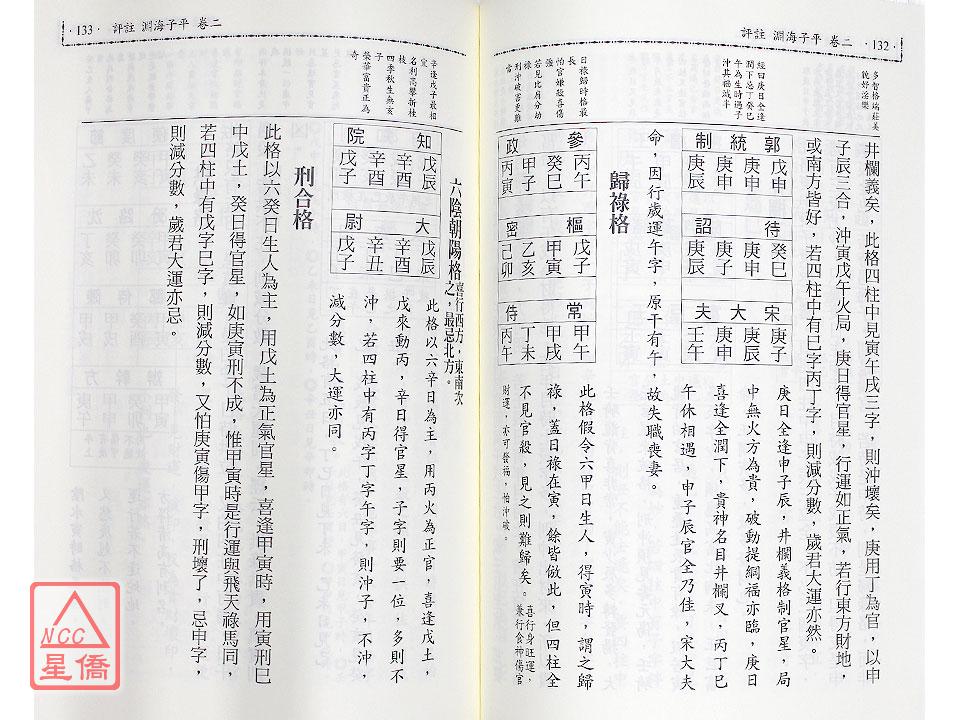 評註 淵海子平 卷二 ·132·
多智格端莊美
貌好淫樂
經曰庚日全逢
潤下忌丁癸巳
午為生時遇子
沖其福減半
日祿歸時格最
長
怕官嫌殺喜傷
強
若見比肩分劫
祿
刑沖破害更難
當
井欄義矣，此格四柱中見寅午戌三字，則沖壞矣，庚用丁為官，以申
子辰三合，沖寅戊午火局，庚日得官星，行運如正氣，若行東方財地，
或南方皆好，若四柱中有巳字丙丁字，則減分數，歲君大運亦然。
郭統制
戊申
庚申
庚申
庚辰
待詔
癸巳
庚申
庚子
庚辰
宋大夫
庚子
庚辰
庚申
壬午
庚日全逢申子辰，井欄義格制官星，局
中無火方為貴，破動提綱福亦臨，庚日
喜逢全潤下，貴神名目井欄叉，丙丁巳
午休相遇，申子辰官全乃佳，宋大夫
命，因行歲運午字，原干有午，故失職喪妻。
歸祿格
參政
丙午
癸巳
甲子
丙寅
樞密
戊子
甲寅
乙亥
己卯
常侍
甲午
甲戌
丁未
丙午
此格假令六甲日生人，得寅時，謂之歸
祿，蓋日祿在寅，餘皆倣此，但四柱全
不見官殺，見之則難歸矣。喜行身旺運，兼行食神傷官
財運，亦可發福，怕沖破。
·133· 評註 淵海子平 卷二
辛逢戊子最相
名利高攀折桂
枝
四季秋生無亥
子
榮華富貴正為
奇
六陰朝陽格喜行西方，東南次之，最忌北方。
知院
戊辰
辛酉
辛酉
戊子
大尉
戊辰
辛酉
辛丑
戊子
此格以六辛日為主，用丙火為正官，喜逢戊土，
戊來動丙，辛日得官星，子字則要一位，多則不
沖，若四柱中有丙字丁字午字，則沖子，不沖
減分數，大運亦同。
刑合格
此格以六癸日生人為主，用戊土為正氣官星，喜逢甲寅時，用寅刑巳
中戊土，癸日得官星，如庚寅刑不成，惟甲寅時是行運與飛天祿馬同，
若四柱中有戊字巳字，則減分數，又怕庚寅傷甲字，刑壞了，忌申字，
則減分數，歲君大運亦忌。
NCC
星僑